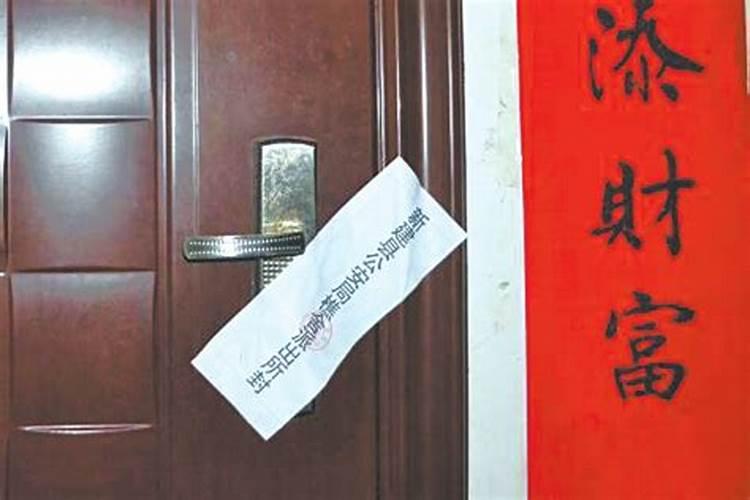 新建县公安局樵舍派出所封
添财富